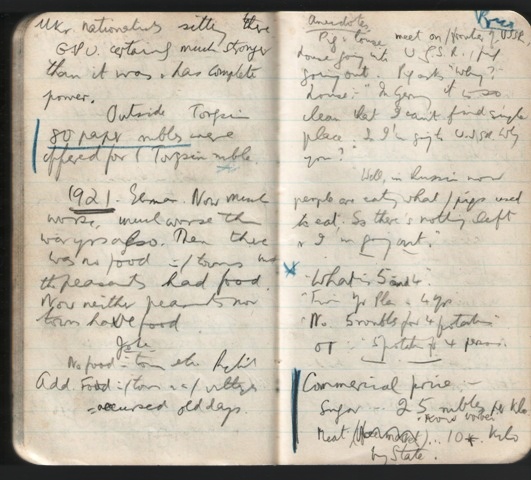 Ukr. nationalists sitting there
G.P.U. certainly much stronger
than it was & has complete
power.
Outside Torgsin
80 paper roubles were
offered for 1 Torgsin rouble.
1921. Now much
worse, much worse than
yrs ago. Then there
was no food in towns
the peasants had food.
Now neither peasants nor
town have food
Joke
No food in town
Add. Food in town
accursed old days.
Anecdotes
Pig & louse meet on frontier of USSR
louse going into U.S.S.R., pig
going out. Pig asks "Why?"
Louse:- "In Germany it is so
clean that I can't find single
place. So I'm going to USSR. Why
you?"
Well, in Russia now
people are eating what pigs used
to eat. So there's nothing left
& I'm going out."
"What is 5 and 4"
Yr Plan in 4 yrs.
"No. 5 roubles for 4 potatoes
or 5 potatoes for 4 persons.
Commercial price.-
Sugar - 25 roubles per Kilo
now worse
Meat ... 10 Kilo
by State.